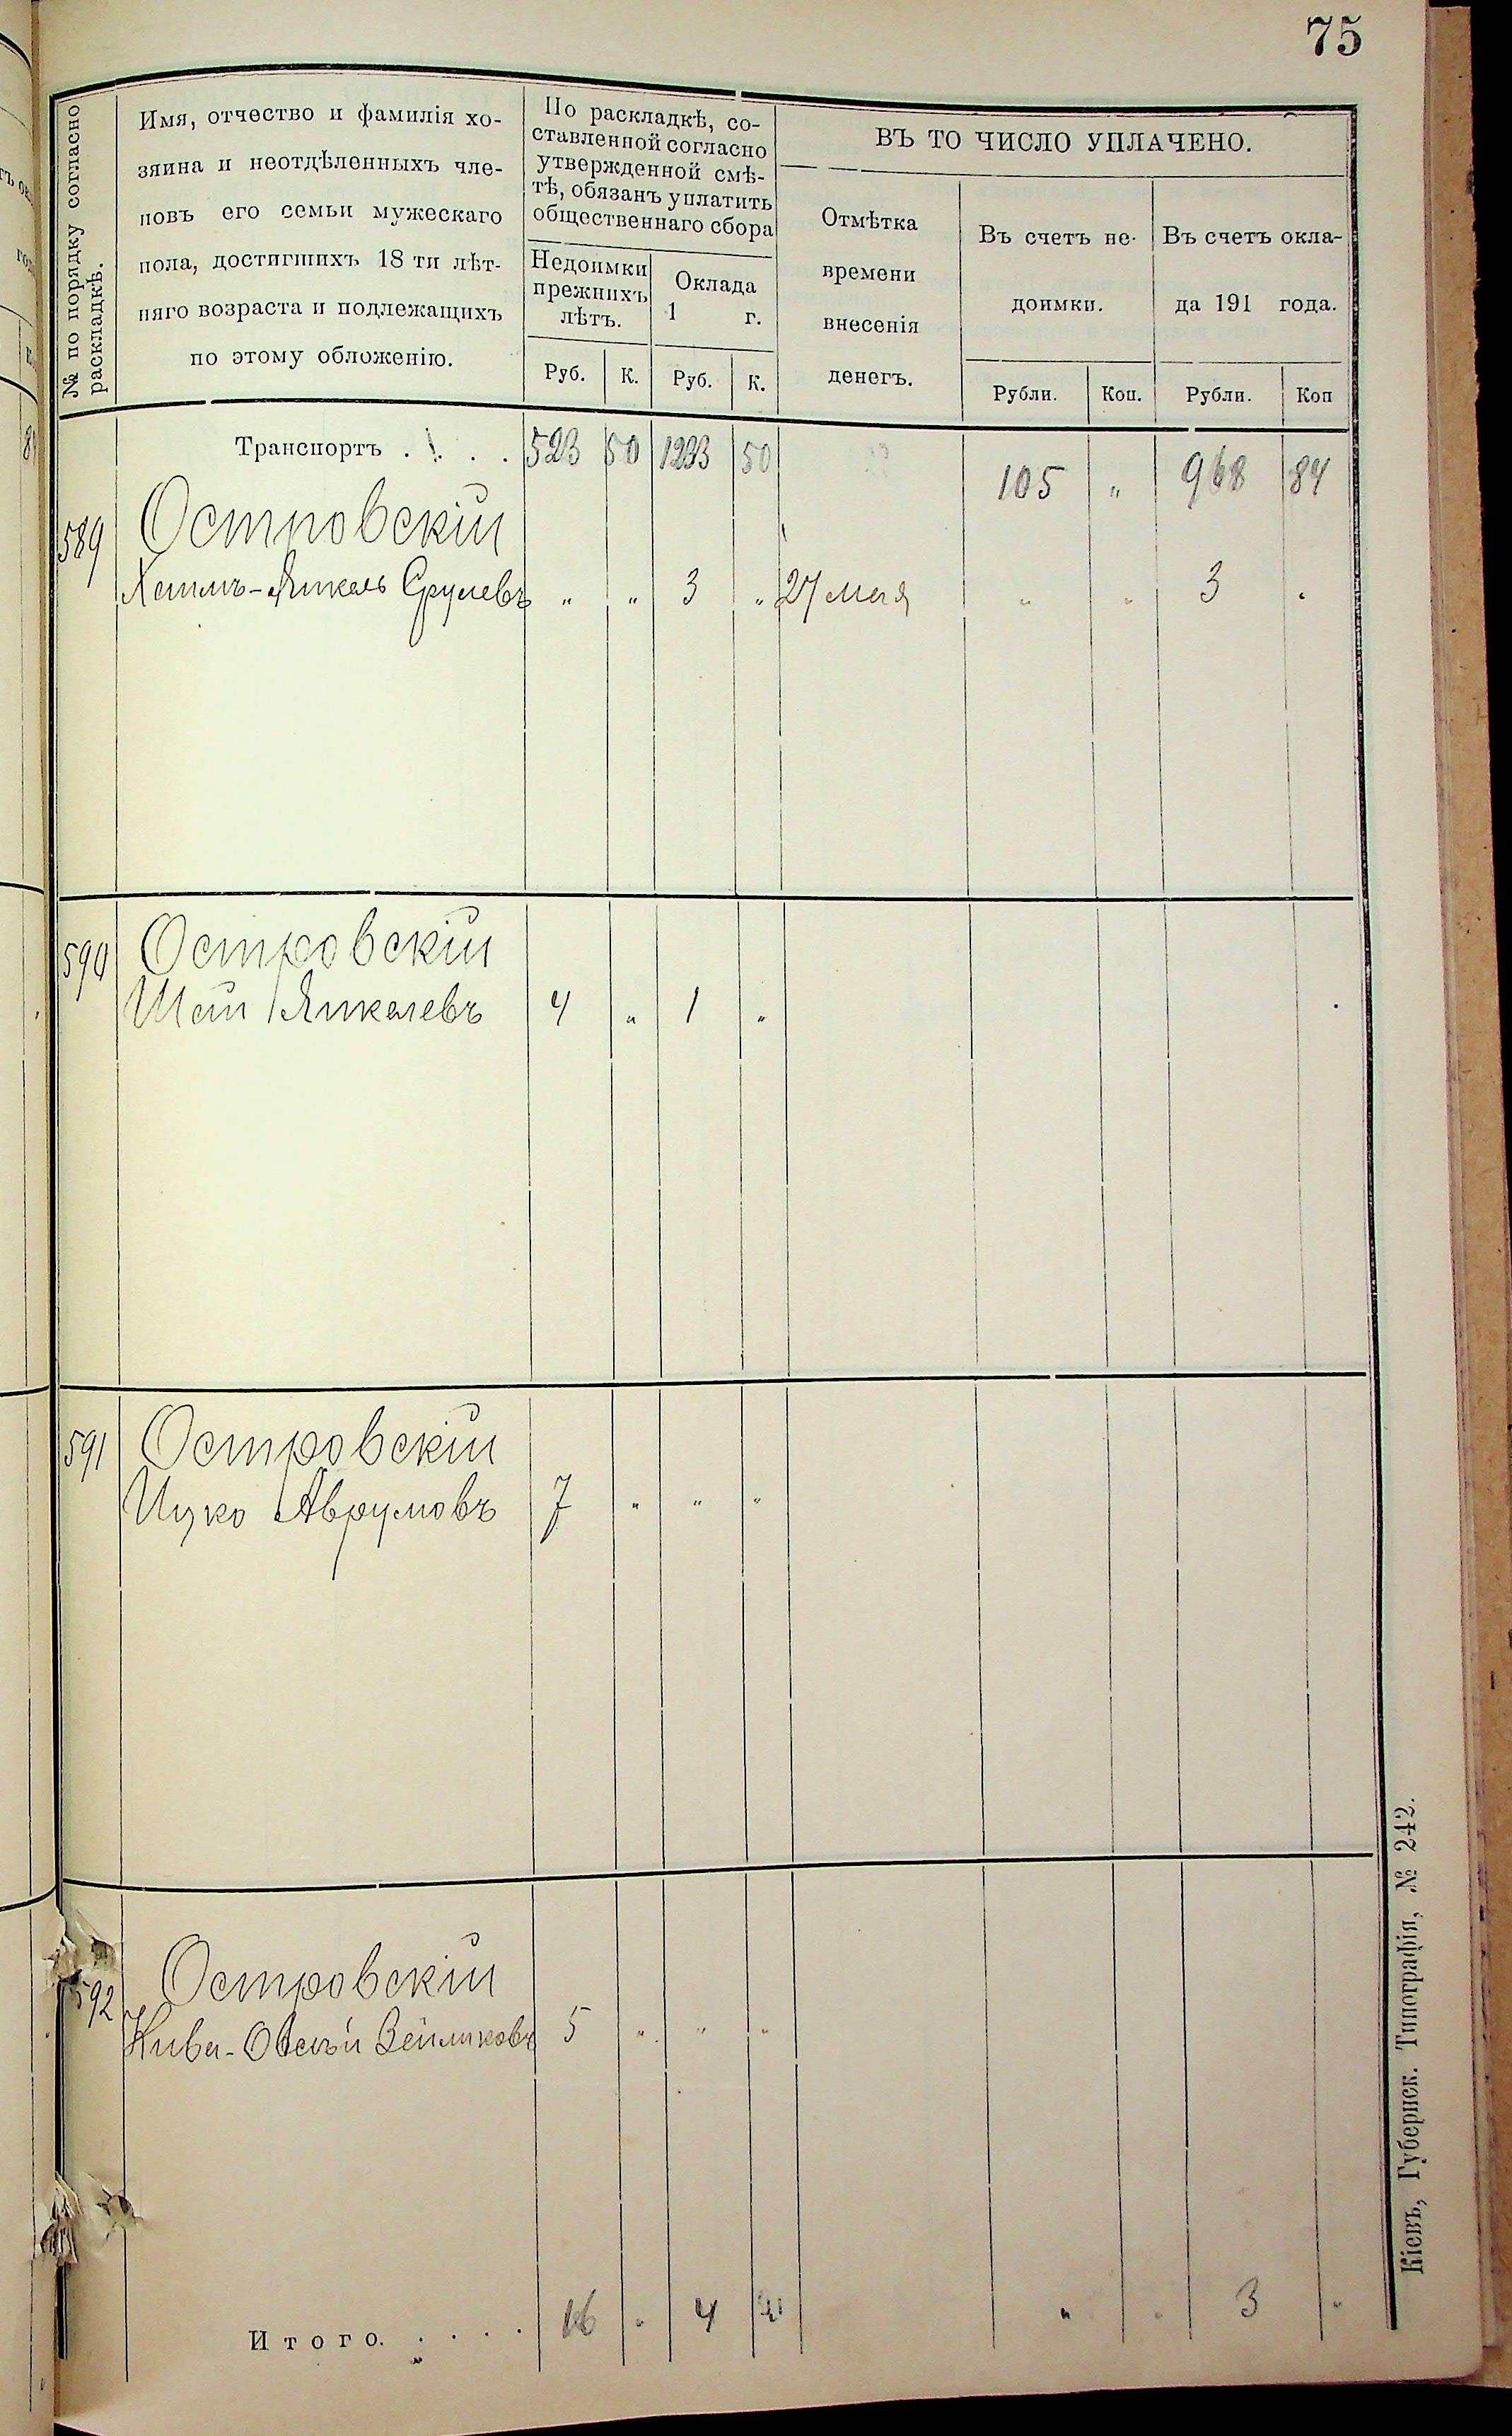 75
№ по порядку согласно
раскладкѣ.
Имя, отчество и фамилія хо-
зяина и неотдѣленныхъ чле-
новъ его семьи мужескаго
пола, достигшихъ 18 ти лѣт-
няго возраста и подлежащихъ
по этому обложенію.
По раскладкѣ, со-
ставленной согласно
утвержденной смѣ-
тѣ, обязанъ уплатить
общественнаго сбора
Недоимки
прежнихъ
лѣтъ.
Оклада
1 г.
Руб. К. Руб. К.
ВЪ ТО ЧИСЛО УПЛАЧЕНО.
Отмѣтка
времени
внесенія
денегъ.
Въ счетъ не-
доимки.
Въ счетъ окла-
да 191 года.
Рубли. Коп. Рубли. Коп
Транспортъ . . . . 523 50 1233 50 105 " 968 84
589 Островскій
Хаимъ-Янкель Срулевъ " " 3 " 27 мая " " 3 "
590 Островскій
Шая Янкелевъ 4 " 1 "
591 Островскій
Ицко Аврумовъ 7 " " "
592 Островскій
Кива-Овсѣй Зейликовъ 5 " " "
Итого. . . . . 16 " 4 " " " 3 "
Кіевъ, Губернск. Типографія, № 242.